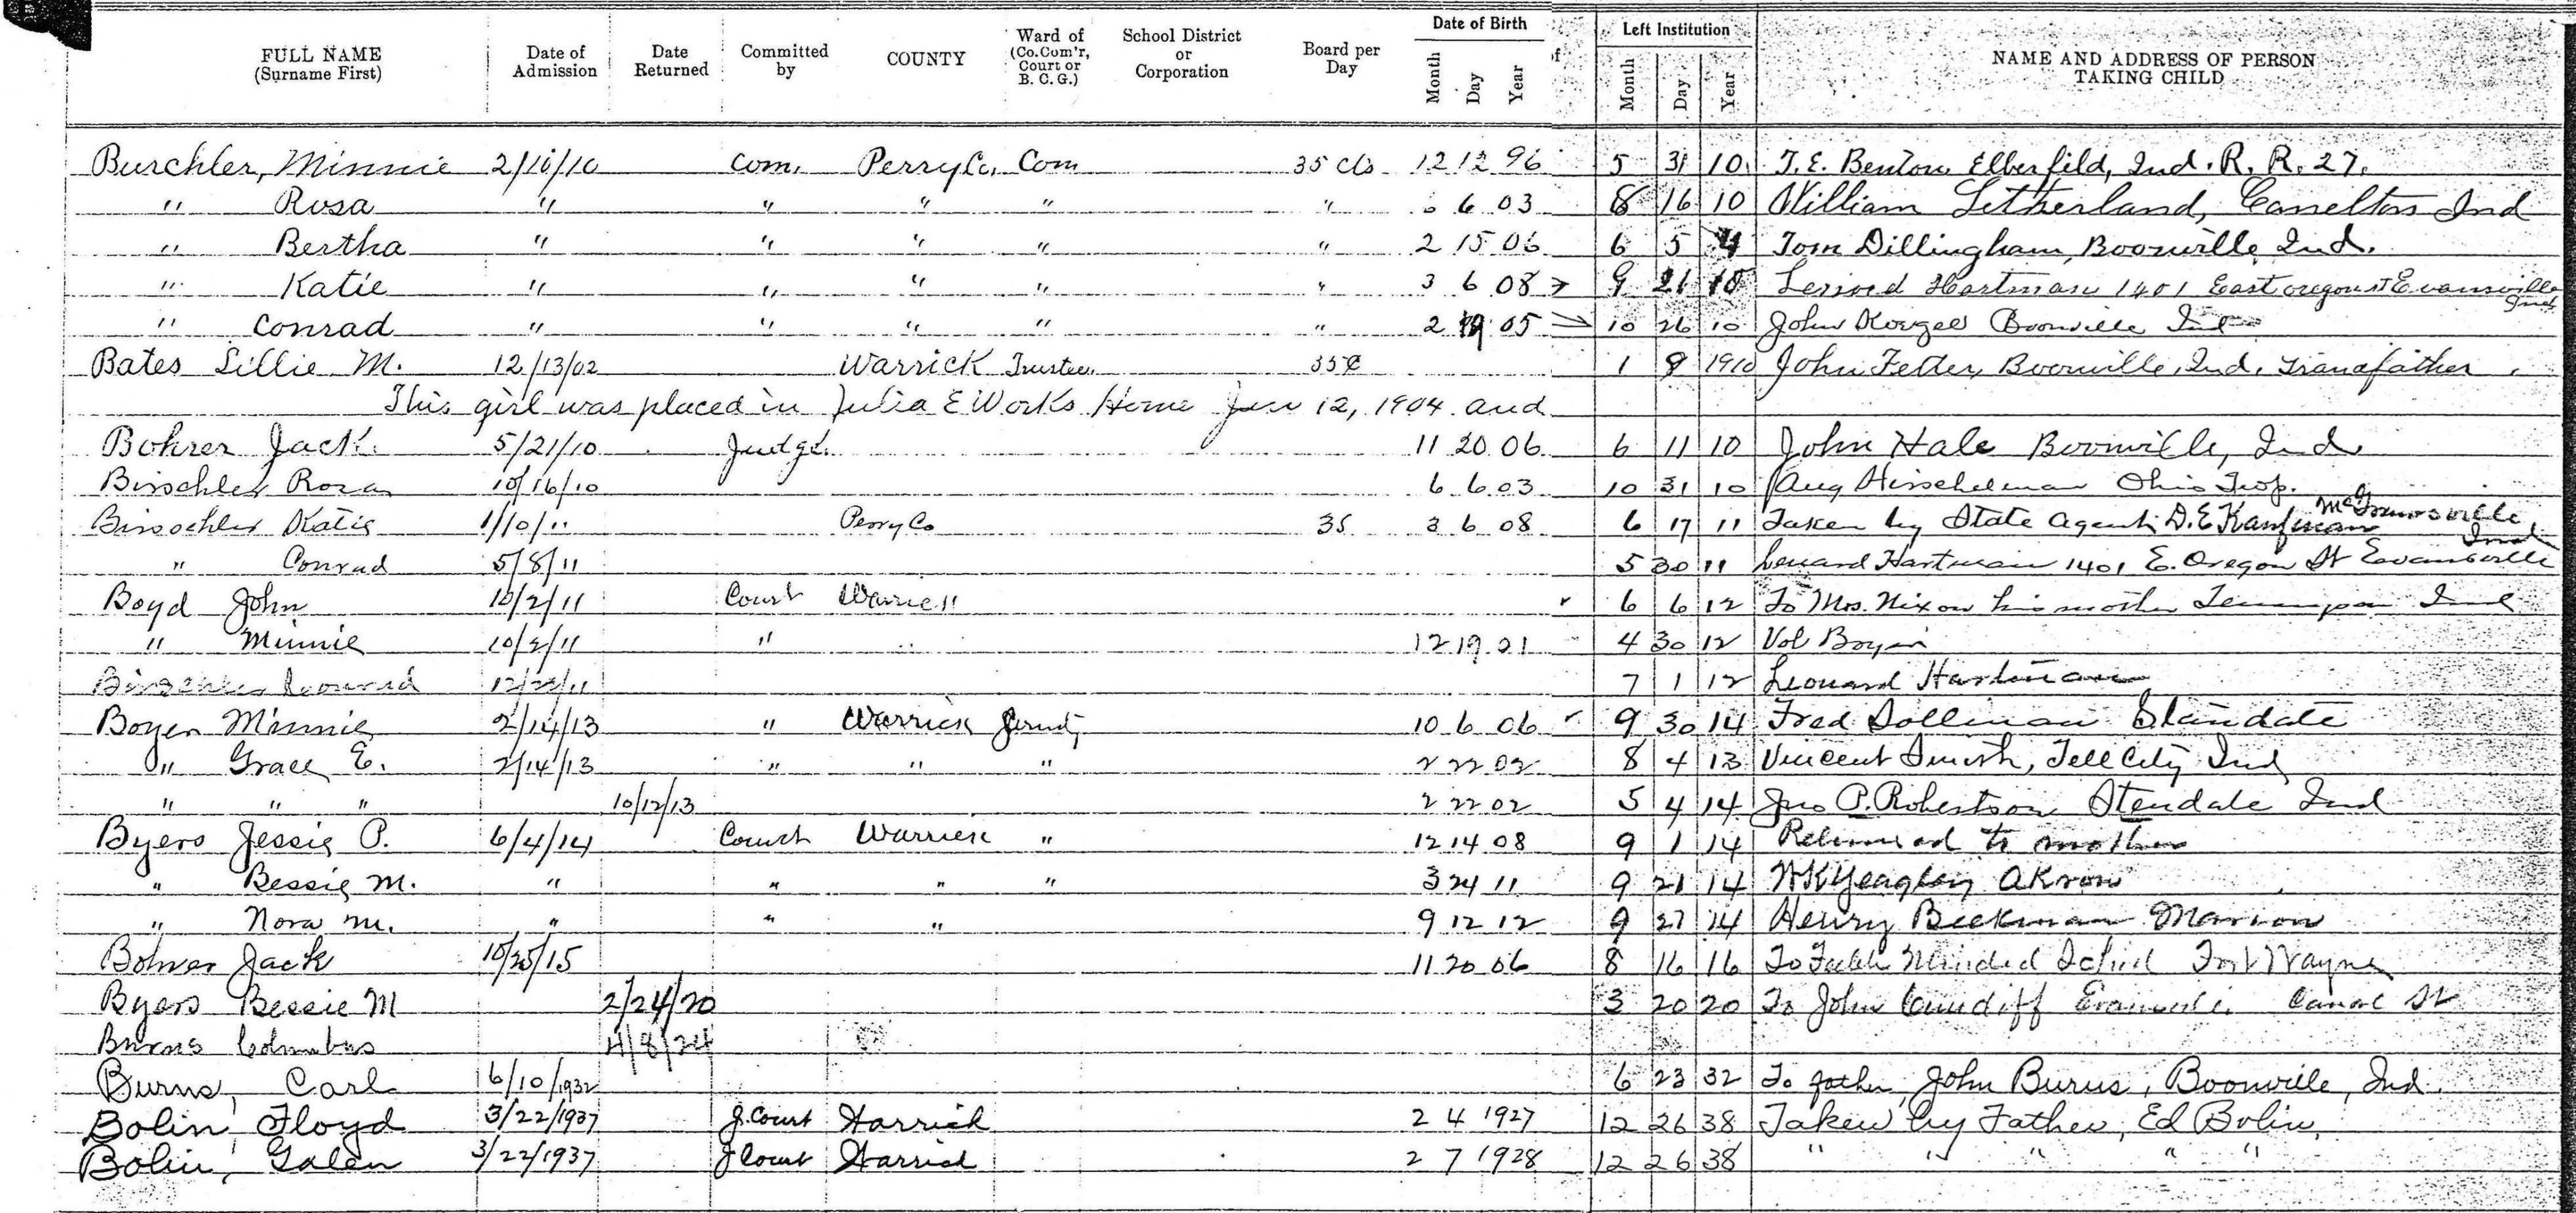 FULL NAME (Surname First) Date of Admission Date Returned Committed by COUNTY Ward of (Co. Com'r, Court or B. C. G.) School District or Corporation Board per Day Date of Birth Month Day Year Left Institution Month Day Year NAME AND ADDRESS OF PERSON TAKING CHILD
Burchler, Minnie 2/10/10 Com. Perry Co. Com 35 cts 12 12 96 5 31 10 T. E. Benton Elberfild, Ind. R. R. 27.
" Rosa " " " " " 6 6 03 8 16 10 William Litherland, Cannelton Ind
" Bertha " " " " " 2 15 06 6 5 Tom Dillingham, Boonville, Ind.
" Katie " " " " " 3 6 08 9 21 10 Hartman 1401 East oregon st Evansville Ind
" Conrad " " " " " 2 19 05 10 26 10 John Boonville Ind
Bates Lillie M. 12/13/02 Warrick Trustee 35¢ 1 8 1910 John Fetter, Boonville, Ind. Grandfather
This girl was placed in Julia E Works Home Jan 12, 1904 and
Bohrer Jack 5/21/10 Judge 11 20 06 6 11 10 John Hale Boonville, Ind.
Birschler Rosa 10/16/10 6 6 03 10 31 10 Aug Hirschelman Ohio Twp.
Birschler Katie 1/10/11 Perry Co 35 3 6 08 6 17 11 Taken by State Agent D. E Kaufman Ind
" Conrad 5/8/11 5 30 11 Lenard Hartman 1401 E. Oregon St Evansville
Boyd John 10/2/11 Court Warrick 6 6 12 To Mrs. Nixon his mother Ind
" Minnie 10/2/11 " " 12 19 01 4 30 12 Vol
Birschler Conrad 12/22/11 7 1 12 Leonard Hartman
Boyer Minnie 2/14/13 " Warrick 10 6 06 9 30 14 Fred Stendale
" Grace E. 2/14/13 " " " 2 22 02 8 4 13 Vincent Smith, Tell City Ind
" " " 10/12/13 2 22 02 5 4 14 Jno P. Robertson Stendale Ind
Byers Jessie P. 6/4/14 Court Warrick " 12 14 08 9 1 14 Returned to mother
" Bessie M. " " " " 3 24 11 9 21 14 Yeagley Akron
" Nora M. " " " 9 12 12 9 27 14 Henry Beekman Marion
Bohrer Jack 10/25/15 11 20 06 8 16 16 To Feeble Minded School Fort Wayne
Byers Bessie M 2/24/20 3 20 20 To John Cundiff Evansville Canal St
Burns Columbus 4/8/24
Burns, Carl 6/10/1932 6 23 32 To father, John Burns, Boonville, Ind.
Bolin, Floyd 3/22/1937 J. Court Warrick 2 4 1927 12 26 38 Taken by Father, Ed Bolin,
Bolin, Galen 3/22/1937 J Court Warrick 2 7 1928 12 26 38 " " " " "